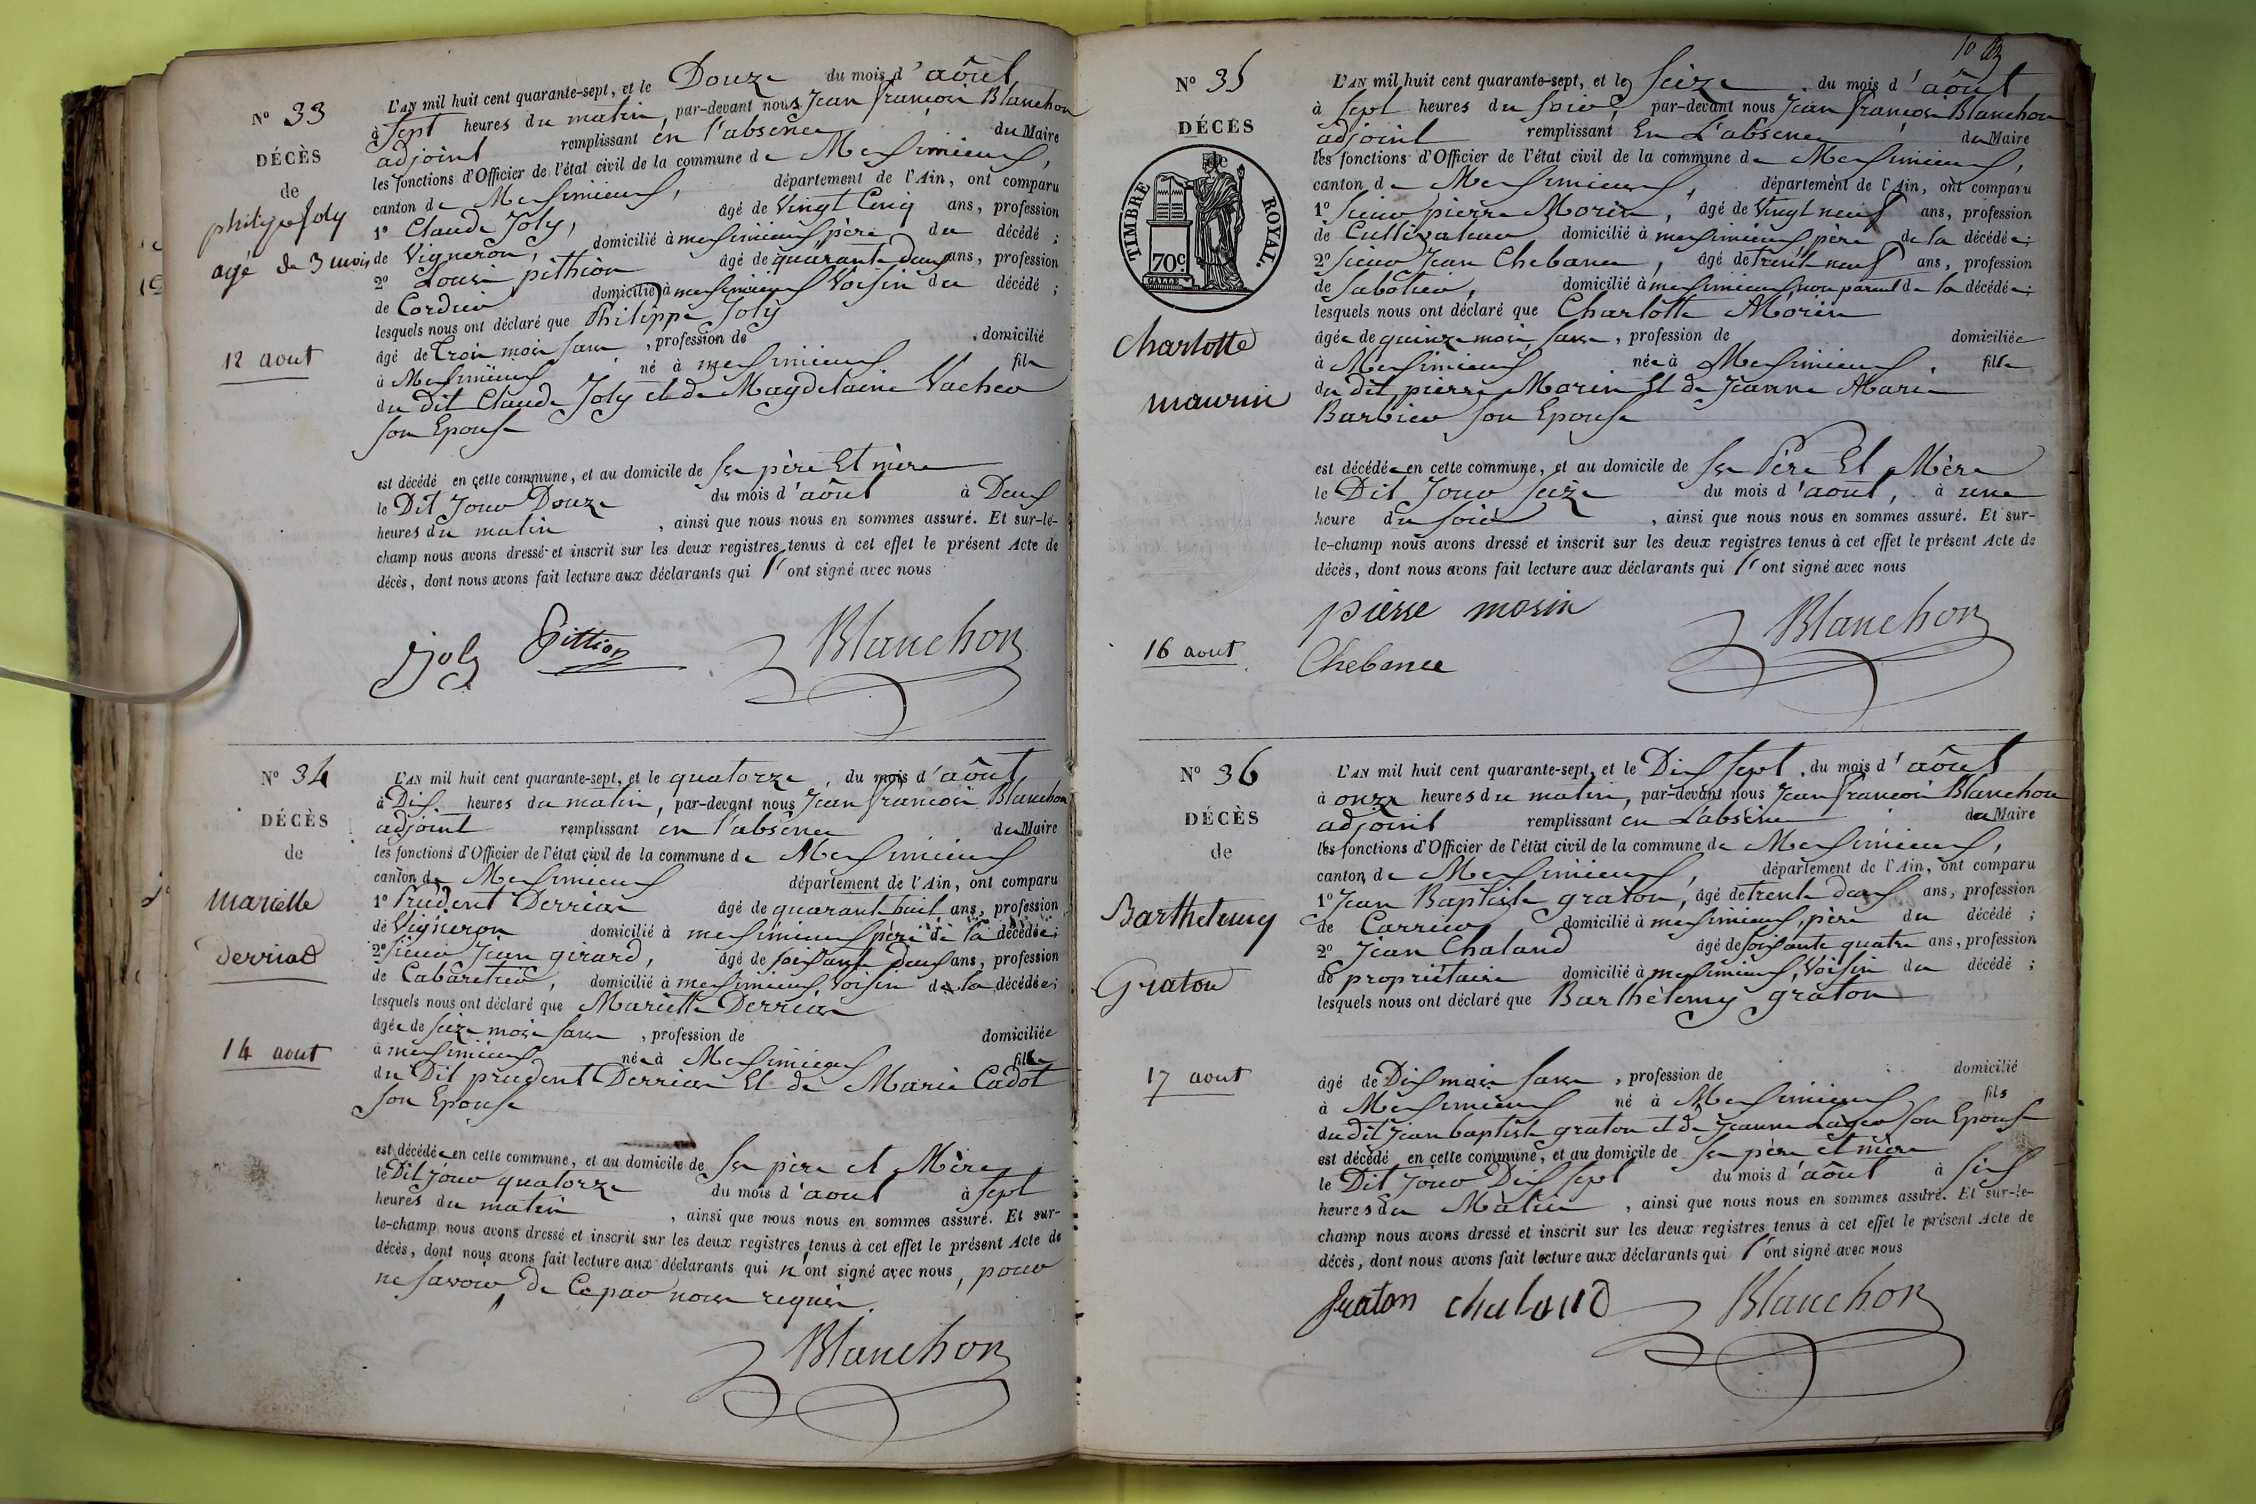 N° 33
DÉCÈS
de
philipe Joly
agé de 3 mois
12 aout
L'AN mil huit cent quarante-sept, et le Douze du mois d'août
à Sept heures du matin, par-devant nous Jean françois Blanchon
adjoint remplissant en l'absence du Maire
les fonctions d'Officier de l'état civil de la commune de Messimieux,
canton de Messimieux, département de l'Ain, ont comparu
1° Claude Joly, âgé de Vingt Cinq ans, profession
de Vigneron, domicilié à messimieux père du décédé ;
2° Louis pithion âgé de quarante deux ans, profession
de Cordier domicilié à messimieux Voisin du décédé ;
lesquels nous ont déclaré que Philippe Joly
âgé de trois mois sans , profession de , domicilié
à Messimieux né à messimieux fils
du dit Claude Joly et de Magdelaine Vacher
son Epouse
est décédé en cette commune, et au domicile de ses père Et mère
le Dit Jour Douze du mois d'août à Deux
heures du matin , ainsi que nous nous en sommes assuré. Et sur-le-
champ nous avons dressé et inscrit sur les deux registres tenus à cet effet le présent Acte de
décès, dont nous avons fait lecture aux déclarants qui l'ont signé avec nous
Joly Pittion Blanchon
N° 34
DÉCÈS
de
Mariette
Derriad
14 aout
L'AN mil huit cent quarante-sept, et le quatorze, du mois d'août
à Dix heures du matin, par-devant nous Jean françois Blanchon
adjoint remplissant en l'absence du Maire
les fonctions d'Officier de l'état civil de la commune de Messimieux
canton de Messimieux département de l'Ain, ont comparu
1° Prudent Derrias âgé de quarante huit ans, profession
de Vigneron domicilié à messimieux père de la décédée ;
2° Sieur Jean girard, âgé de soixante deux ans, profession
de Cabaretier, domicilié à messimieux Voisin de la décédée ;
lesquels nous ont déclaré que Mariette Derrias
âgée de seize mois sans , profession de domiciliée
à messimieux née à Messimieux fille
du Dit prudent Derrias Et de Marie Cadot
son Epouse
est décédée en cette commune, et au domicile de ses père et Mère
le Dit jour quatorze du mois d'aout à sept
heures du matin , ainsi que nous nous en sommes assuré. Et sur-
le-champ nous avons dressé et inscrit sur les deux registres tenus à cet effet le présent Acte de
décès, dont nous avons fait lecture aux déclarants qui n'ont signé avec nous, pour
ne savoir de Ce par nous requis.
Blanchon
N° 35
DÉCÈS
de
TIMBRE ROYAL.
70c
Charlotte
maurin
16 aout
L'AN mil huit cent quarante-sept, et le Seize du mois d'août
à Sept heures du soir, par-devant nous Jean françois Blanchon
adjoint remplissant En L'absence du Maire
les fonctions d'Officier de l'état civil de la commune de Messimieux,
canton de Messimieux, département de l'Ain, ont comparu
1° Sieur pierre Morin, âgé de Vingt neuf ans, profession
de Cultivateur domicilié à messimieux père de la décédée ;
2° Sieur Jean Chebance, âgé de trente neuf ans, profession
de Sabotier, domicilié à messimieux non parent de la décédée ;
lesquels nous ont déclaré que Charlotte Morin
âgée de quinze mois sans , profession de domiciliée
à Messimieux née à Messimieux fille
du dit pierre Morin Et de Jeanne Marie
Barbier son Epouse
est décédée en cette commune, et au domicile de ses Père Et Mère
le Dit Jour seize du mois d'aout, à une
heure du soir , ainsi que nous nous en sommes assuré. Et sur-
le-champ nous avons dressé et inscrit sur les deux registres tenus à cet effet le présent Acte de
décès, dont nous avons fait lecture aux déclarants qui l'ont signé avec nous
pierre morin Blanchon
Chebance
N° 36
DÉCÈS
de
Barthelemy
Graton
17 aout
L'AN mil huit cent quarante-sept, et le Dix sept, du mois d'août
à onze heures du matin, par-devant nous Jean françois Blanchon
adjoint remplissant en L'absence du Maire
les fonctions d'Officier de l'état civil de la commune de Messimieux,
canton de Messimieux, département de l'Ain, ont comparu
1° Jean Baptiste graton, âgé de trente deux ans, profession
de Carrier domicilié à messimieux, père du décédé ;
2° Jean Chaland âgé de soixante quatre ans, profession
de propriétaire domicilié à messimieux, Voisin du décédé ;
lesquels nous ont déclaré que Barthèlemy graton
âgé de Dix mois sans , profession de domicilié
à Messimieux né à Messimieux fils
du dit jean baptiste graton et de Jeanne son Epouse
est décédé en cette commune, et au domicile de ses père et mère
le Dit jour Dix sept du mois d'août à six
heures du Matin , ainsi que nous nous en sommes assuré. Et sur-le-
champ nous avons dressé et inscrit sur les deux registres tenus à cet effet le présent Acte de
décès, dont nous avons fait lecture aux déclarants qui l'ont signé avec nous
Graton chaland Blanchon